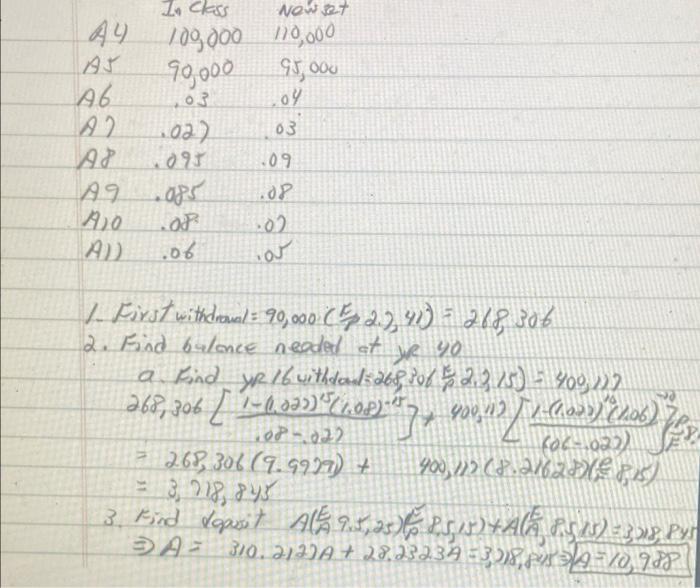 In Class New set
A4 100,000 110,000
A5 90,000 95,000
A6 .03 .04
A7 .027 .03
A8 .095 .09
A9 .085 .08
A10 .08 .07
A11 .06 .05
1. First withdrawal = 90,000 (F/P 2.7, 41) = 268,306
2. Find balance needed at yr 40
a. Find yr 16 withdrawal = 268,306 (F/P 2.7, 15) = 400,117
268,306 [ 1-(1.027)^15 (1.08)^-15 / .08-.027 ] + 400,117 [ 1-(1.027)^10 (1.06)^-10 / (.06-.027) ]
= 268,306 (9.9979) + 400,117 (8.21628)(P/F 8, 15)
= 3,718,845
3. Find deposit A(F/A 9.5, 25)(F/P 8.5, 15) + A(F/A, 8.5, 15) = 3,718,845
⇒ A = 310.2127A + 28.2323A = 3,718,845 ⇒ A = 10,988